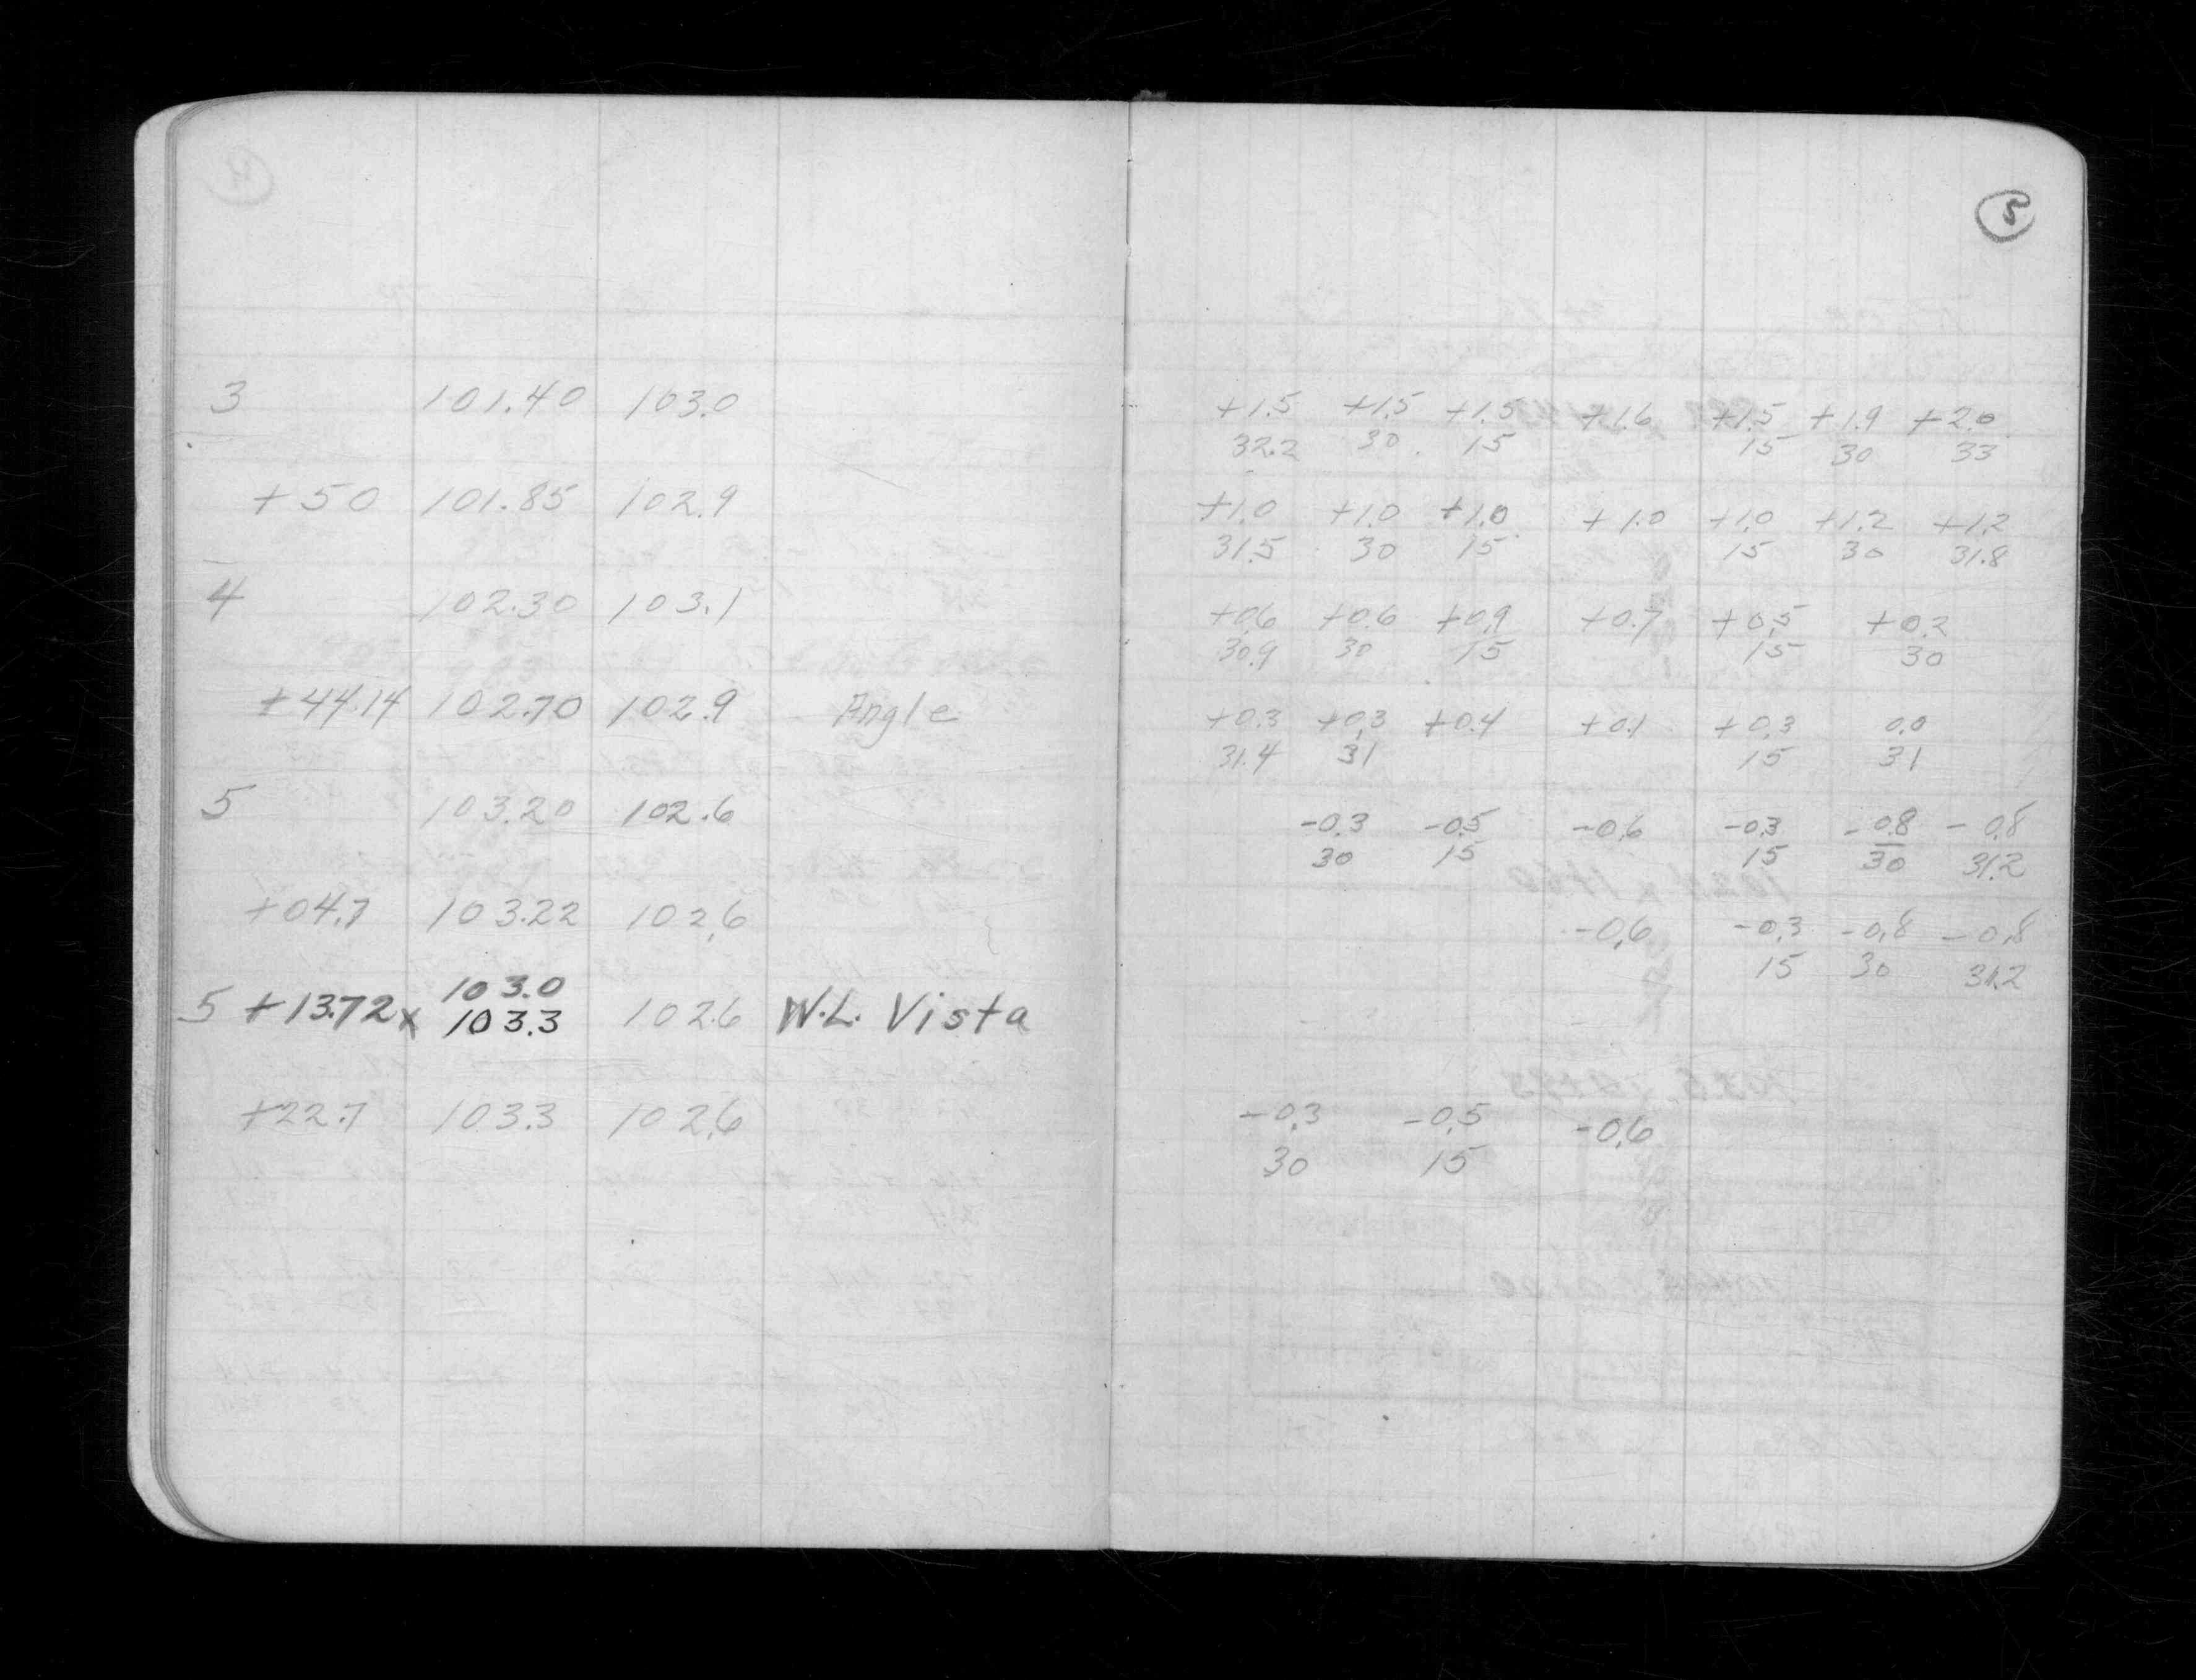 3 101.40 103.0
+50 101.85 102.9
4 102.30 103.1
+44.14 102.70 102.9 Angle
5 103.20 102.6
+04.7 103.22 102.6
103.0
5 +13.72 x 103.3 102.6 W.L. Vista
+22.7 103.3 102.6
5
+1.5 +1.5 +1.5 +1.6 +1.5 +1.9 +2.0
32.2 30 15 15 30 33
+1.0 +1.0 +1.0 +1.0 +1.0 +1.2 +1.2
31.5 30 15 15 30 31.8
+0.6 +0.6 +0.9 +0.7 +0.5 +0.2
30.9 30 15 15 30
+0.3 +0.3 +0.4 +0.1 +0.3 0.0
31.4 31 15 31
-0.3 -0.5 -0.6 -0.3 -0.8 -0.8
30 15 15 30 31.2
-0.6 -0.3 -0.8 -0.8
15 30 31.2
-0.3 -0.5 -0.6
30 15